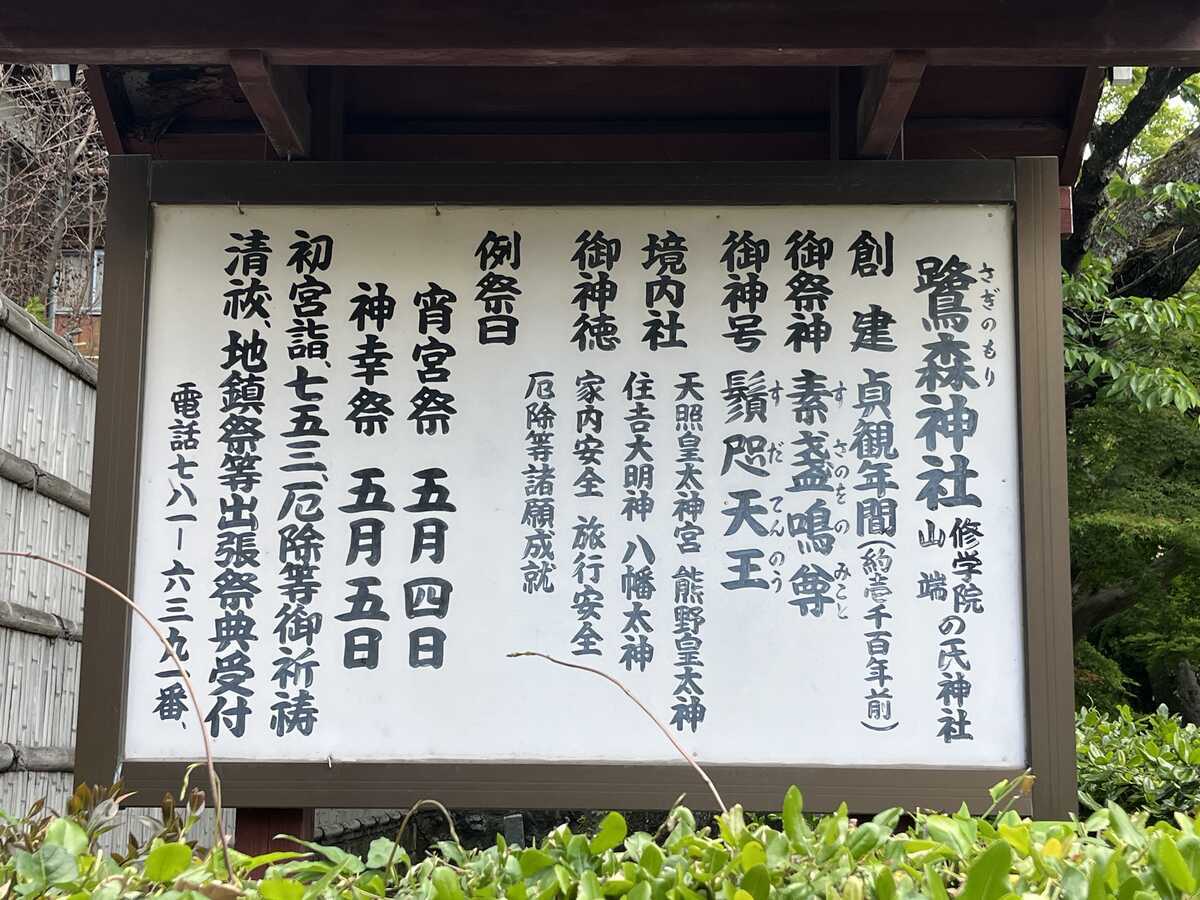 鷺森神社 修学院 山端 の氏神社
さぎのもり
創建 貞観年間(約壱千百年前)
御祭神 素盞鳴尊
すさのをのみこと
御神号 鬚咫天王
すだてんのう
境内社 天照皇太神宮 熊野皇太神
住吉大明神 八幡太神
御神徳 家内安全 旅行安全
厄除等諸願成就
例祭日
宵宮祭 五月四日
神幸祭 五月五日
初宮詣、七五三、厄除等御祈祷
清祓、地鎮祭等出張祭典受付
電話七八一ー六三九一番、